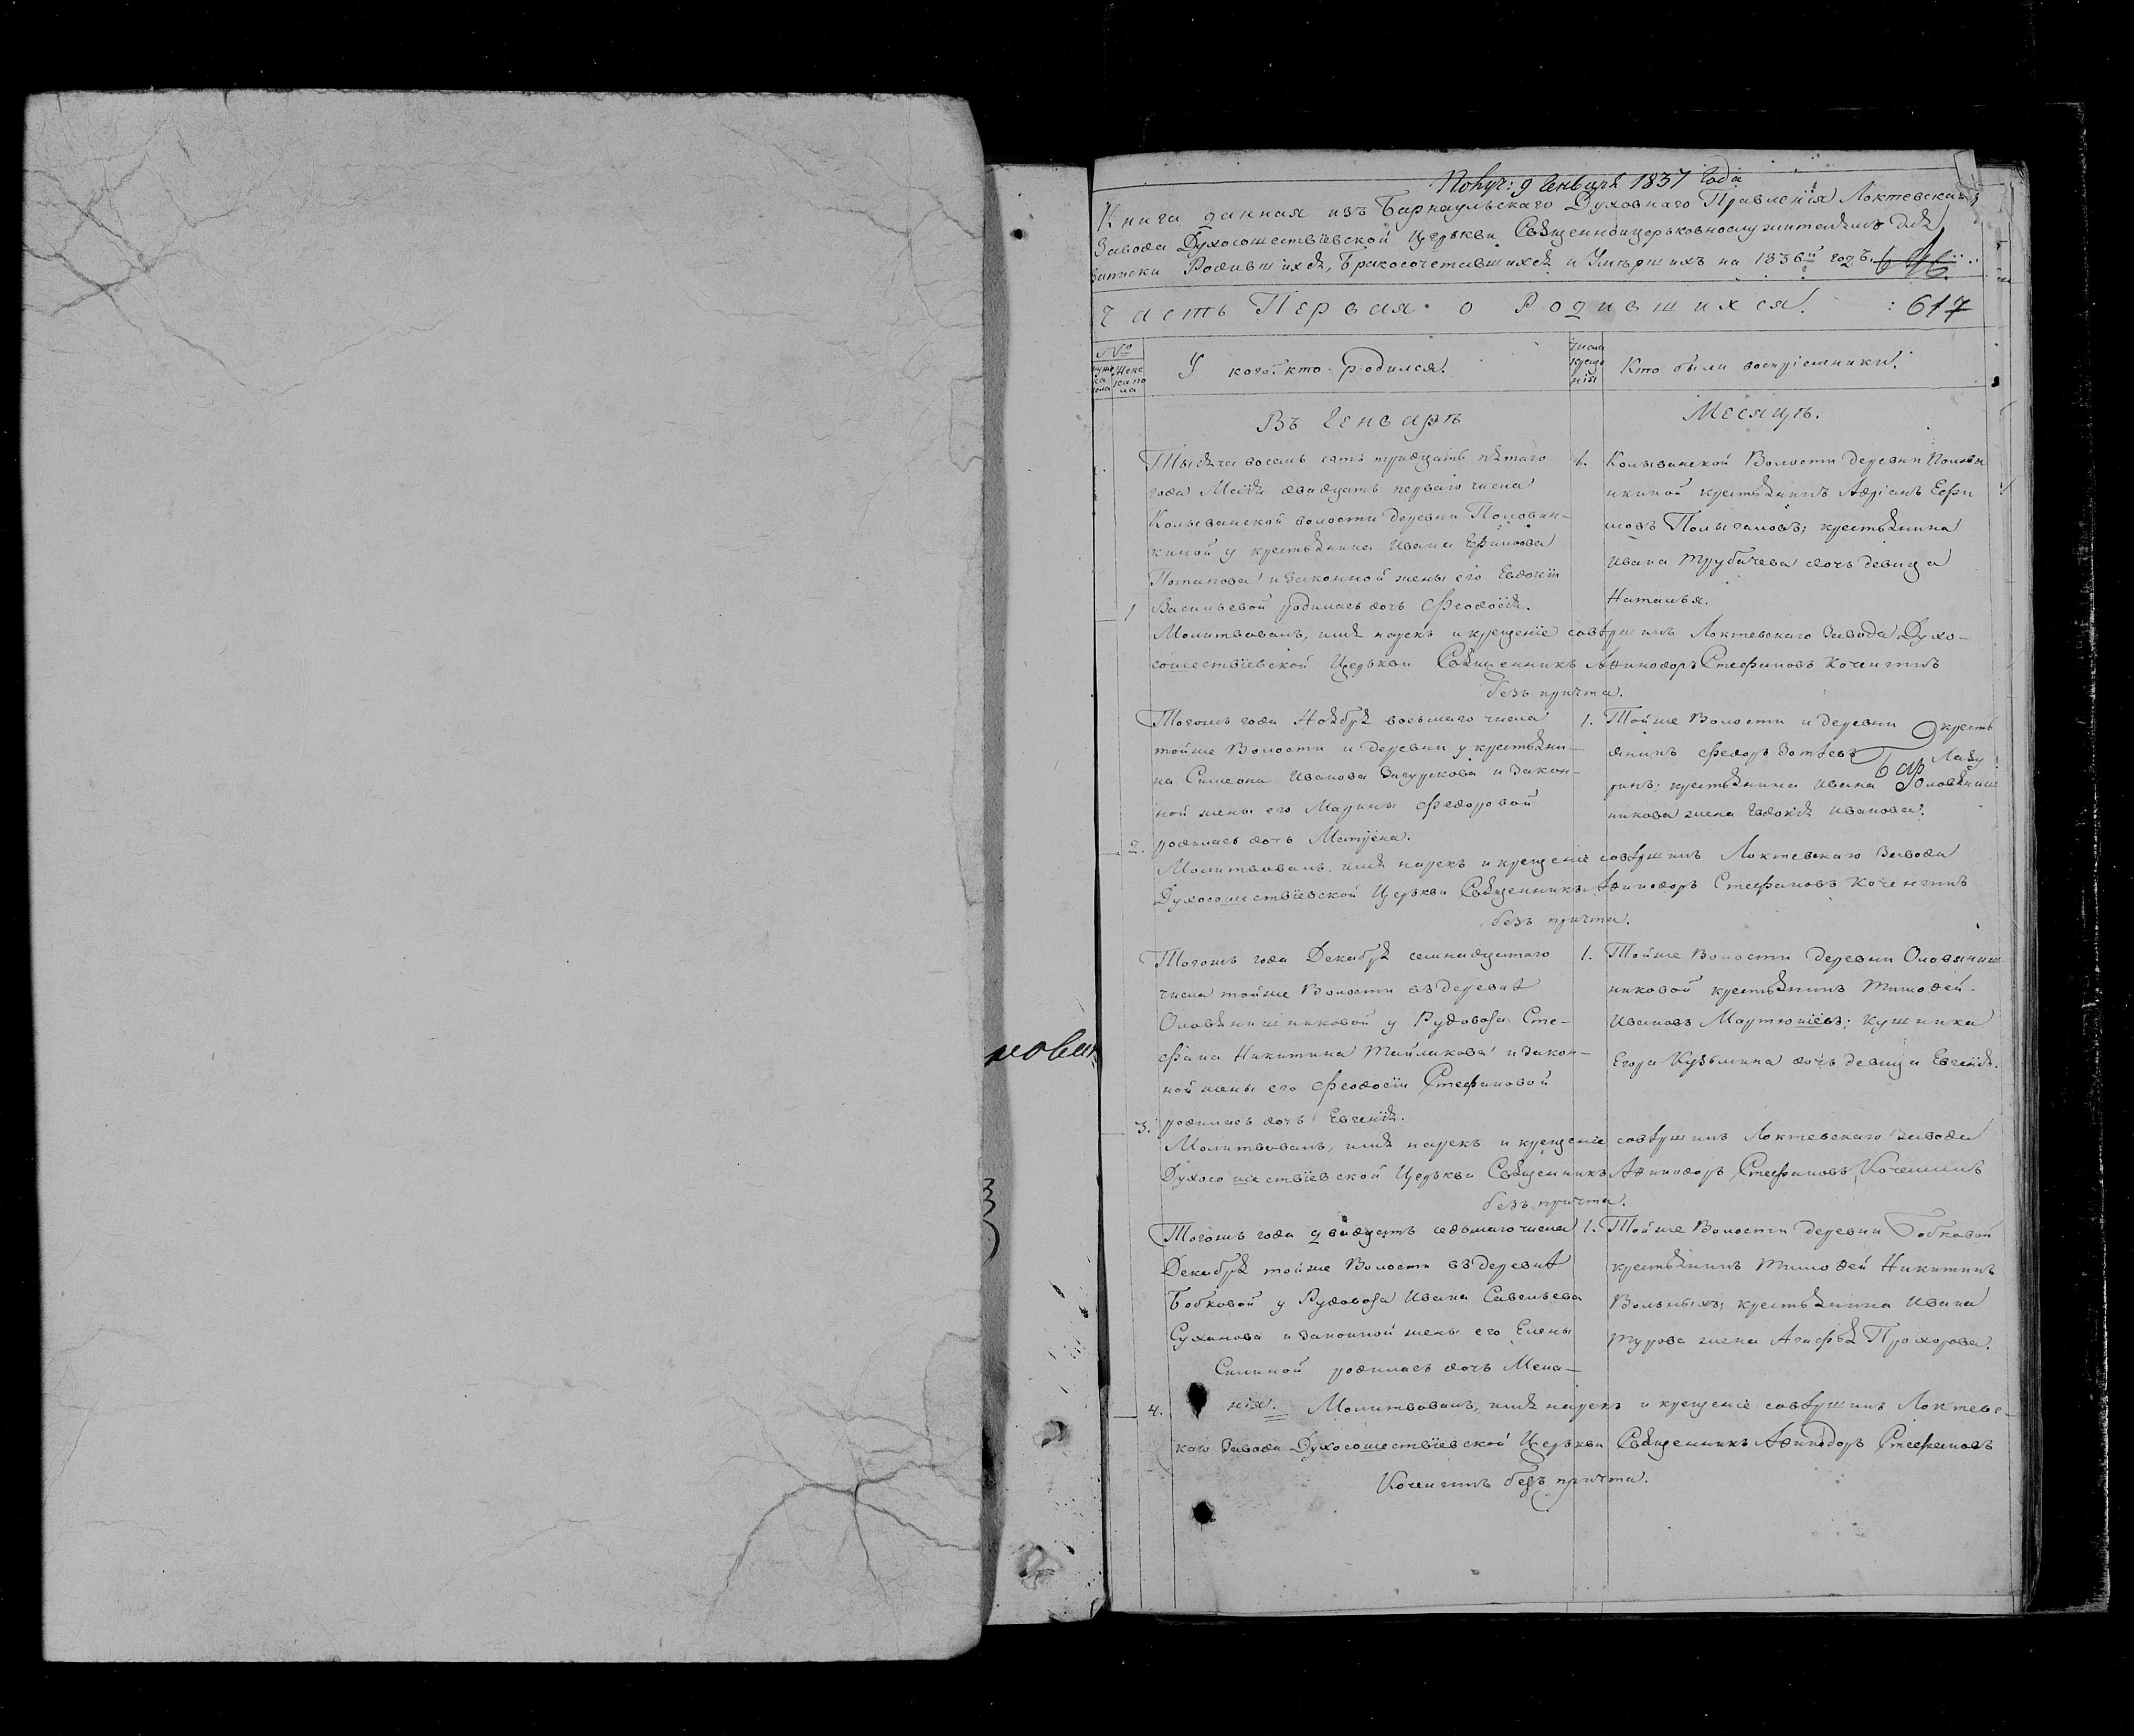 Получ: 9 Генваря 1837 Года
Книга данная изъ Барнаульскаго Духовнаго Правленія Локтевскаго
Завода Духосошествіевской Церькви Священноицерьковнослужителямъ для
записки Родившихся, Бракосочетавшихся и Умершихъ на 1836й годъ.
Часть Первая о Родившихся. 617
№
У кого кто родился.
числа крещенія
Кто были воспріемники.
Въ Генваръ
Месяцъ.
Тысяча восемь сотъ тридцать пятаго
года Маія двадцать перваго числа
Колыванской волости деревни Половин-
киной у крестьянина Ивана Ефимова
Потапова и законной жены его Евдокіи
1 Васильевой родилась дочь Феодосія.
1.
Колыванской Волости деревни Полови
нкиной крестьянинъ Адріанъ Ефи
мовъ крестьянина
Ивана Трубачева дочь девица
Наталья.
Молитвовалъ, имя нарекъ и крещеніе совѣршилъ Локтевскаго Завода Духо-
сошествіевской Церькви Священникъ Афинодоръ Стефановъ
безъ причта.
Тогожъ года Ноября восьмаго числа
тойже Волости и деревни у крестьяни-
на Симеона Иванова и Закон-
ной жены его Марины Федоровой
2. родилась дочь Матрена.
1.
Тойже Волости и деревни кресть
янинъ Федоръ Зотѣевъ
крестьянина Ивана Оловяниш
никова жена Евдокія Иванова.
Молитвовалъ, имя нарекъ и крещеніе совѣршилъ Локтевскаго Завода
Духосошествіевской Церькви Священникъ Афинодоръ Стефановъ
безъ причта.
Тогожъ года Декабря семнадцатаго
числа тойже Волости въ деревнѣ
Оловянишниковой у Рудовоза Сте-
фана Никитина Тайлакова и закон-
ной жены его Феодосіи Стефановой
3. родилась дочь Евгенія.
1.
Тойже Волости деревни Оловяниш
никовой крестьянинъ Тимофей
Ивановъ кушника
Егора Кузьмина дочь девица Евгенія.
Молитвовалъ, имя нарекъ и крещеніе совѣршилъ Локтевскаго Завода
Духосошествіевской Церькви Священникъ Афинодоръ Стефановъ
безъ причта.
Тогожъ года двадцать седьмаго числа
Декабря тойже Волости въ деревнѣ
Бобковой у Рудовоза Ивана Савельева
Суханова и законной жены его Елены
Силиной родилась дочь Мела-
4. нія.
1.
Тойже Волости деревни Бобковой
крестьянинъ Тимофей Никитинъ
Вольныхъ; крестьянина Ивана
Турова жена Агафья Прохорова.
Молитвовалъ, имя нарекъ и крещеніе совѣршилъ Локтевс-
каго Завода Духосошествіевской Церькви Священникъ Афинодоръ Стефановъ
безъ причта.